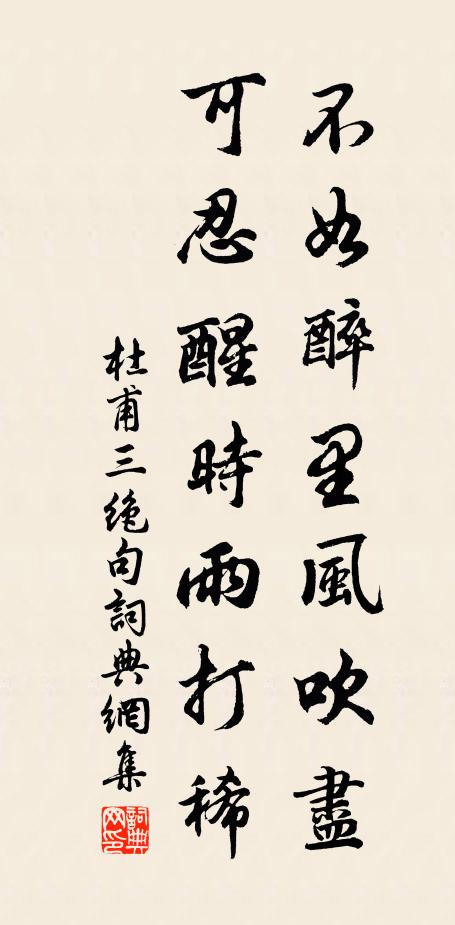 不如醉里風吹盡
可忍醒時雨打稀
杜甫三絶句詞典網集
詞典网印